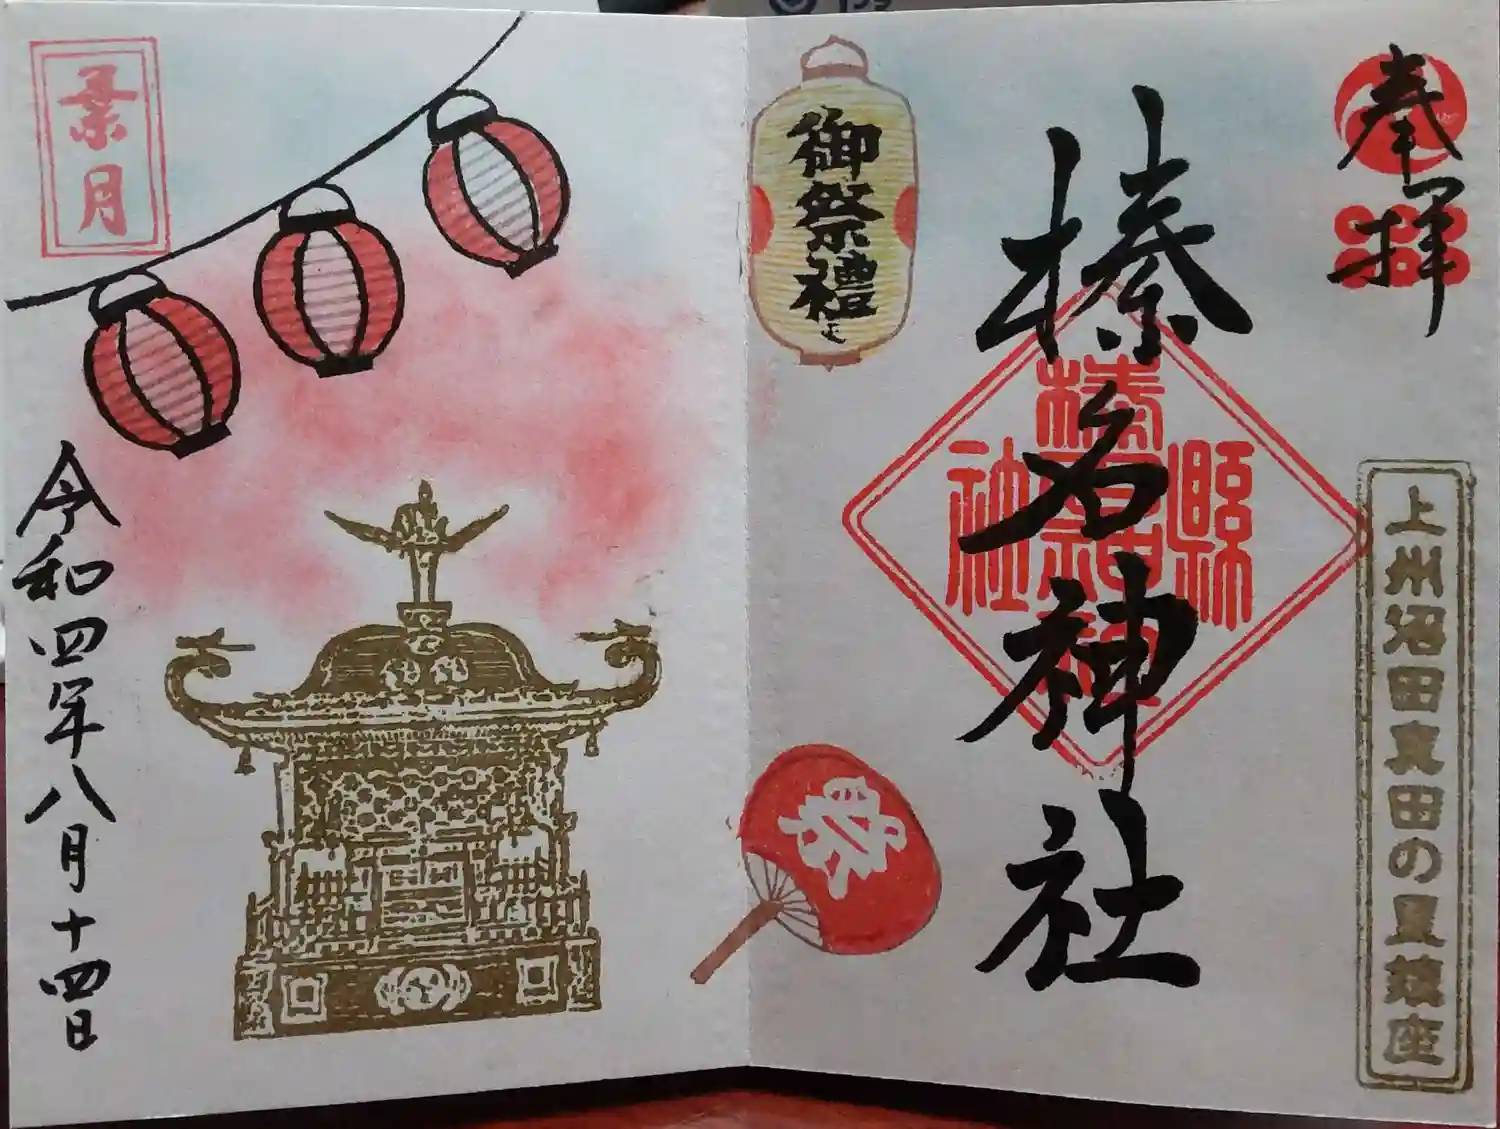 奉拝
上州沼田真田の里鎮座
榛名神社
縣
榛名神社
社
御祭禮
祭
葉月
令和四年八月十四日